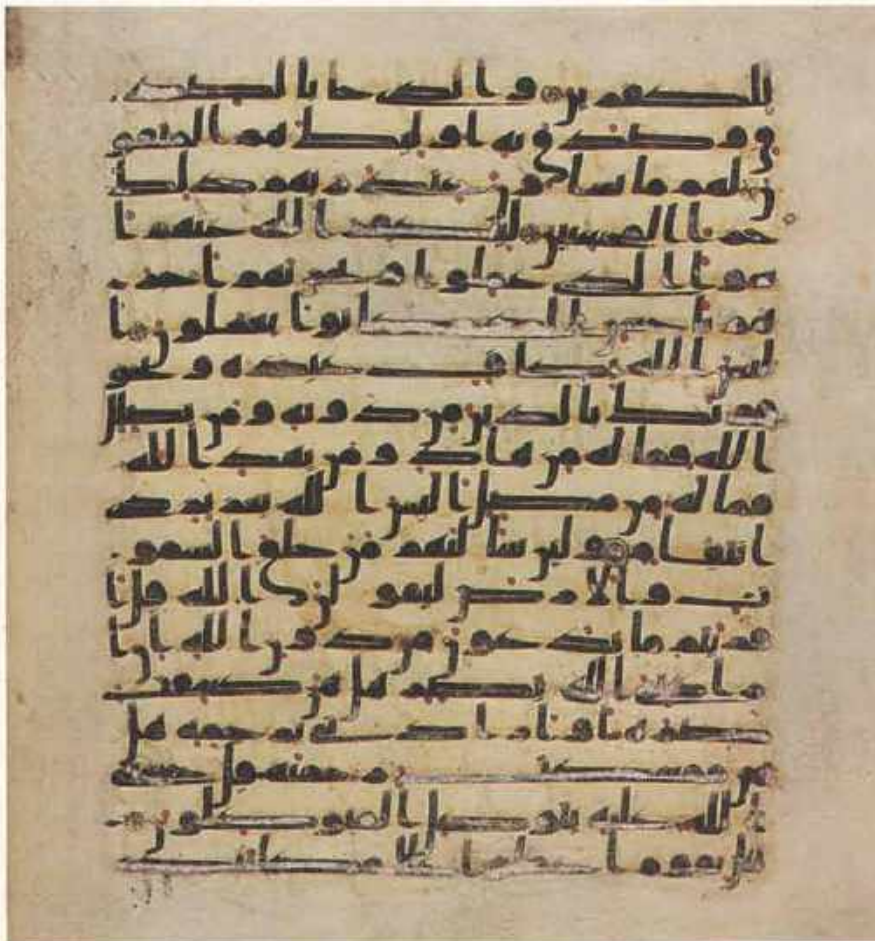 للكفرين والذى جا بالصد
ق وصدق به اوليك هم المتقو
ن لهم ما يشاون عند ربهم ذلك
جزا المحسنين ليكفر الله عنهم ا
سوا الذى عملوا ويجزيهم اجر
هم باحسن الذى كانوا يعملون ا
ليس الله بكاف عبده ويخو
فونك بالذين من دونه ومن يضلل
الله فما له من هاد ومن يهد الله
فما له من مضل اليس الله بعزيز ذى
انتقام ولين سالتهم من خلق السمو
ت والارض ليقولن الله قل ا
فريتم ما تدعون من دون الله ان ا
رادنى الله بضر هل هن كشفت
ضره او ارادنى برحمة هل
هن ممسكت رحمته قل حسبى
الله عليه يتوكل المتوكلون
قل يقوم اعملوا على مكانتكم